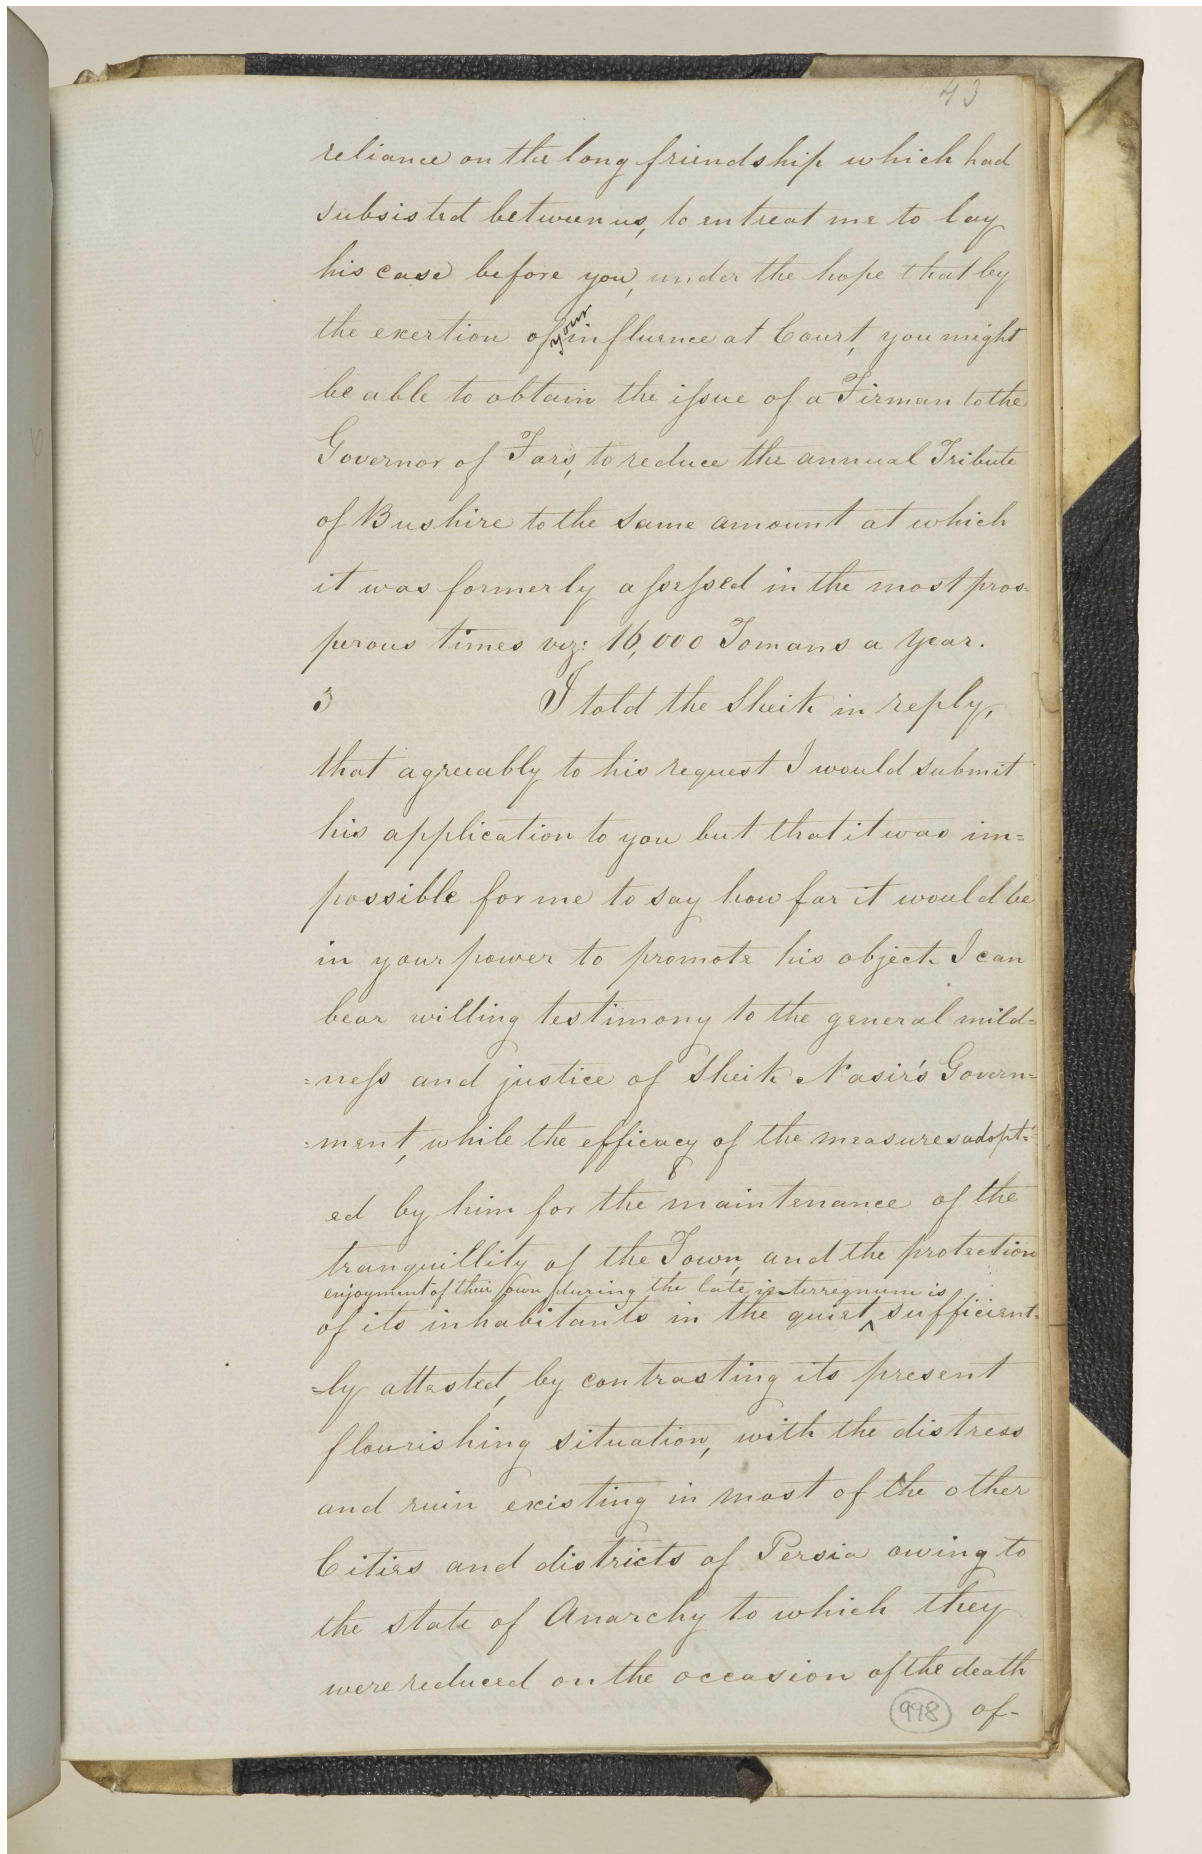 43
reliance on the long friendship which had
subsisted between us, to entreat me to lay
his case before you, under the hope that by
the exertion of your influence at Court, you might
be able to obtain the issue of a Firman to the
Governor of Fars, to reduce the annual Tribute
of Bushire to the same amount at which
it was formerly assessed in the most pros-
perous times viz: 16,000 Tomans a year.
3 I told the Sheik in reply,
that agreeably to his request I would submit
his application to you but that it was im=
possible for me to say how far it would be
in your power to promote his object. I can
bear willing testimony to the general mild=
=ness and justice of Sheik Nasir's Govern=
=ment, while the efficacy of the measures adopt=
ed by him for the maintenance of the
tranquillity of the Town, and the protection
enjoyment of their own during the late interregnum is
of its inhabitants in the quiet ^ sufficient=
=ly attested, by contrasting its present
flourishing situation, with the distress
and ruin existing in most of the other
Cities and districts of Persia owing to
the state of Anarchy to which they
were reduced on the occasion of the death
998 of-